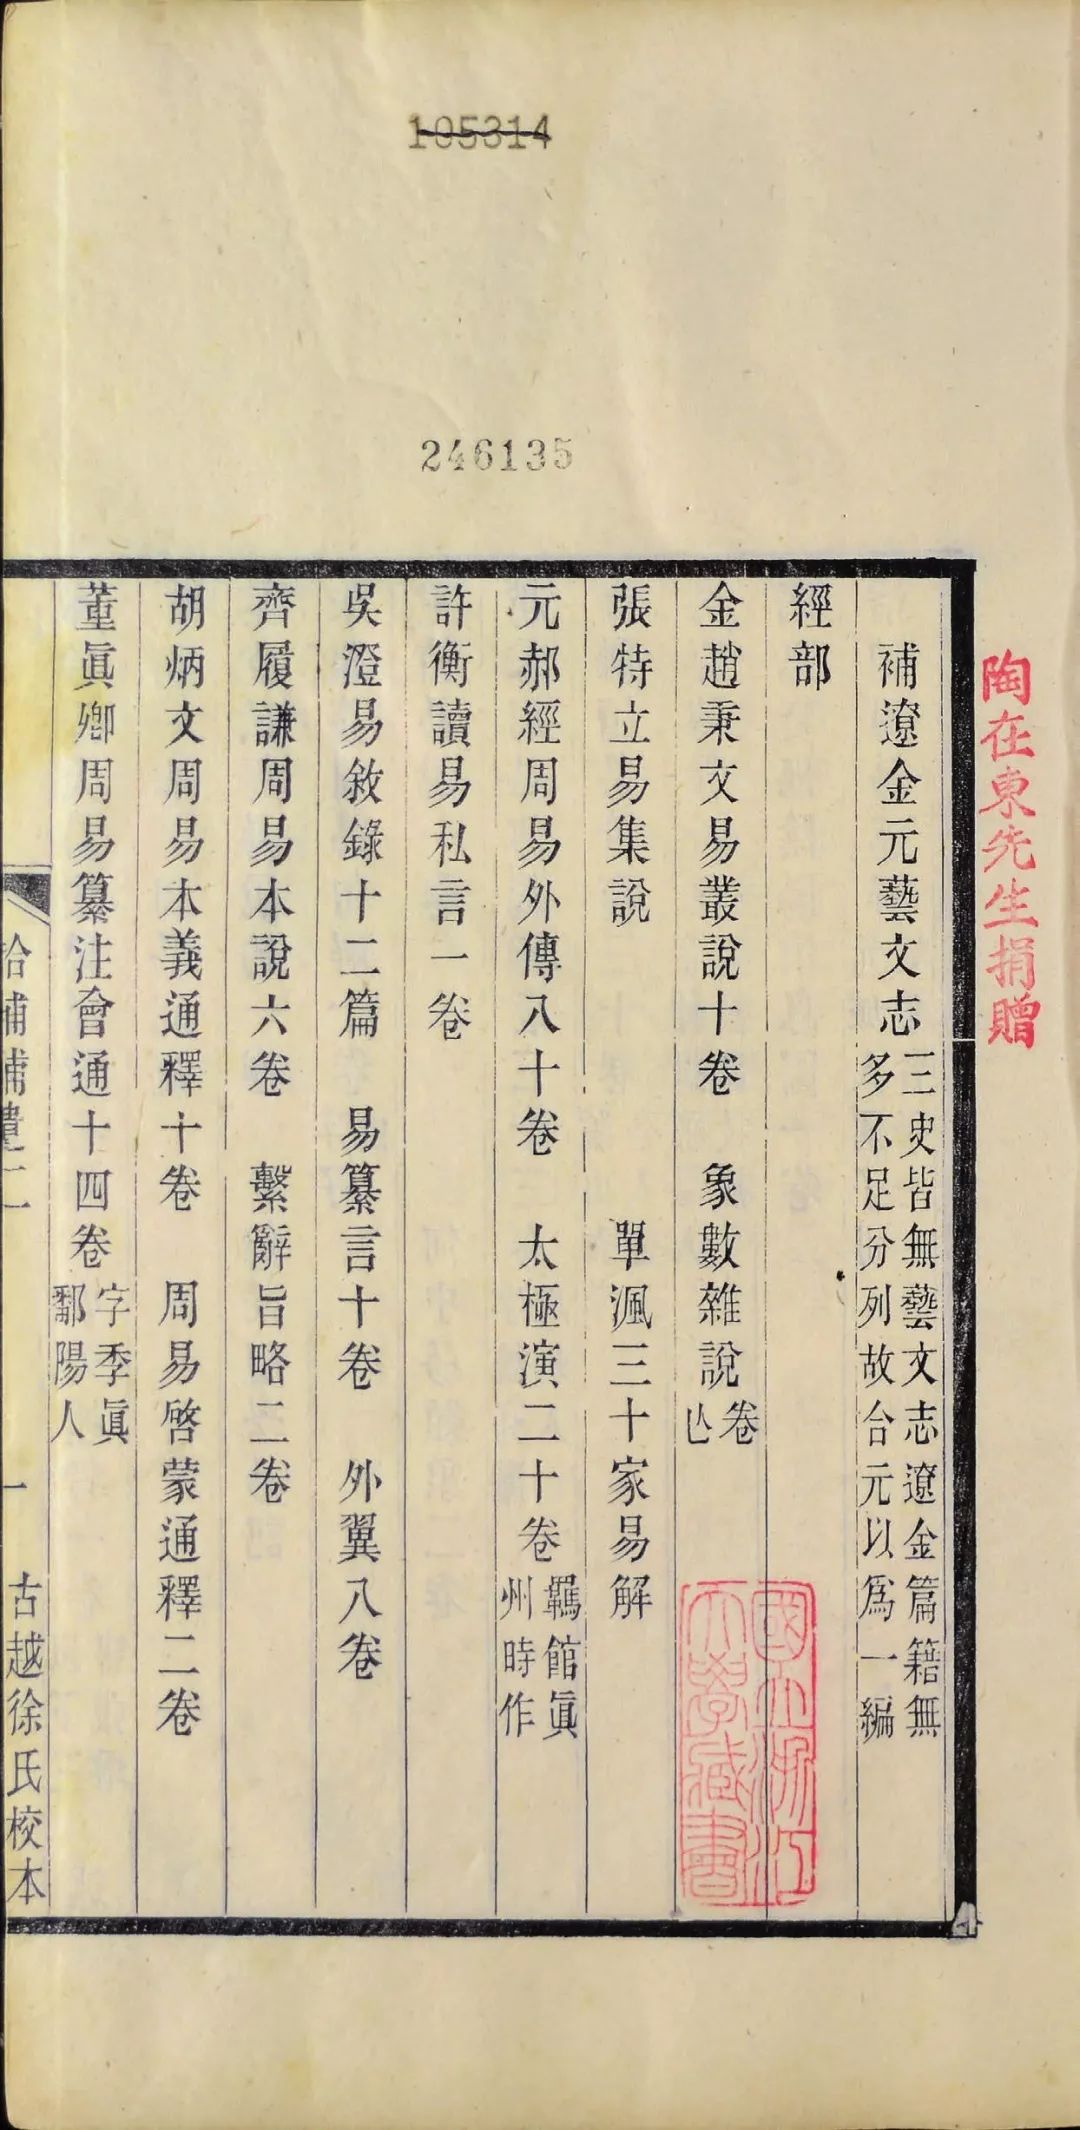 105314
246135
陶在東先生捐贈
補遼金元藝文志 三史皆無藝文志遼金篇籍無
多不足分列故合元以爲一編
經部
金趙秉文易叢說十卷 象數雜說 卷
亾
張特立易集說 單渢三十家易解
元郝經周易外傳八十卷 太極演二十卷 羈館眞
州時作
許衡讀易私言一卷
吳澄易敘錄十二篇 易纂言十卷 外翼八卷
齊履謙周易本說六卷 繫辭旨略二卷
胡炳文周易本義通釋十卷 周易啓蒙通釋二卷
董眞卿周易纂注會通十四卷 字季眞
鄱陽人
拾補補遺二 一 古越徐氏校本
國立浙江
大學藏書